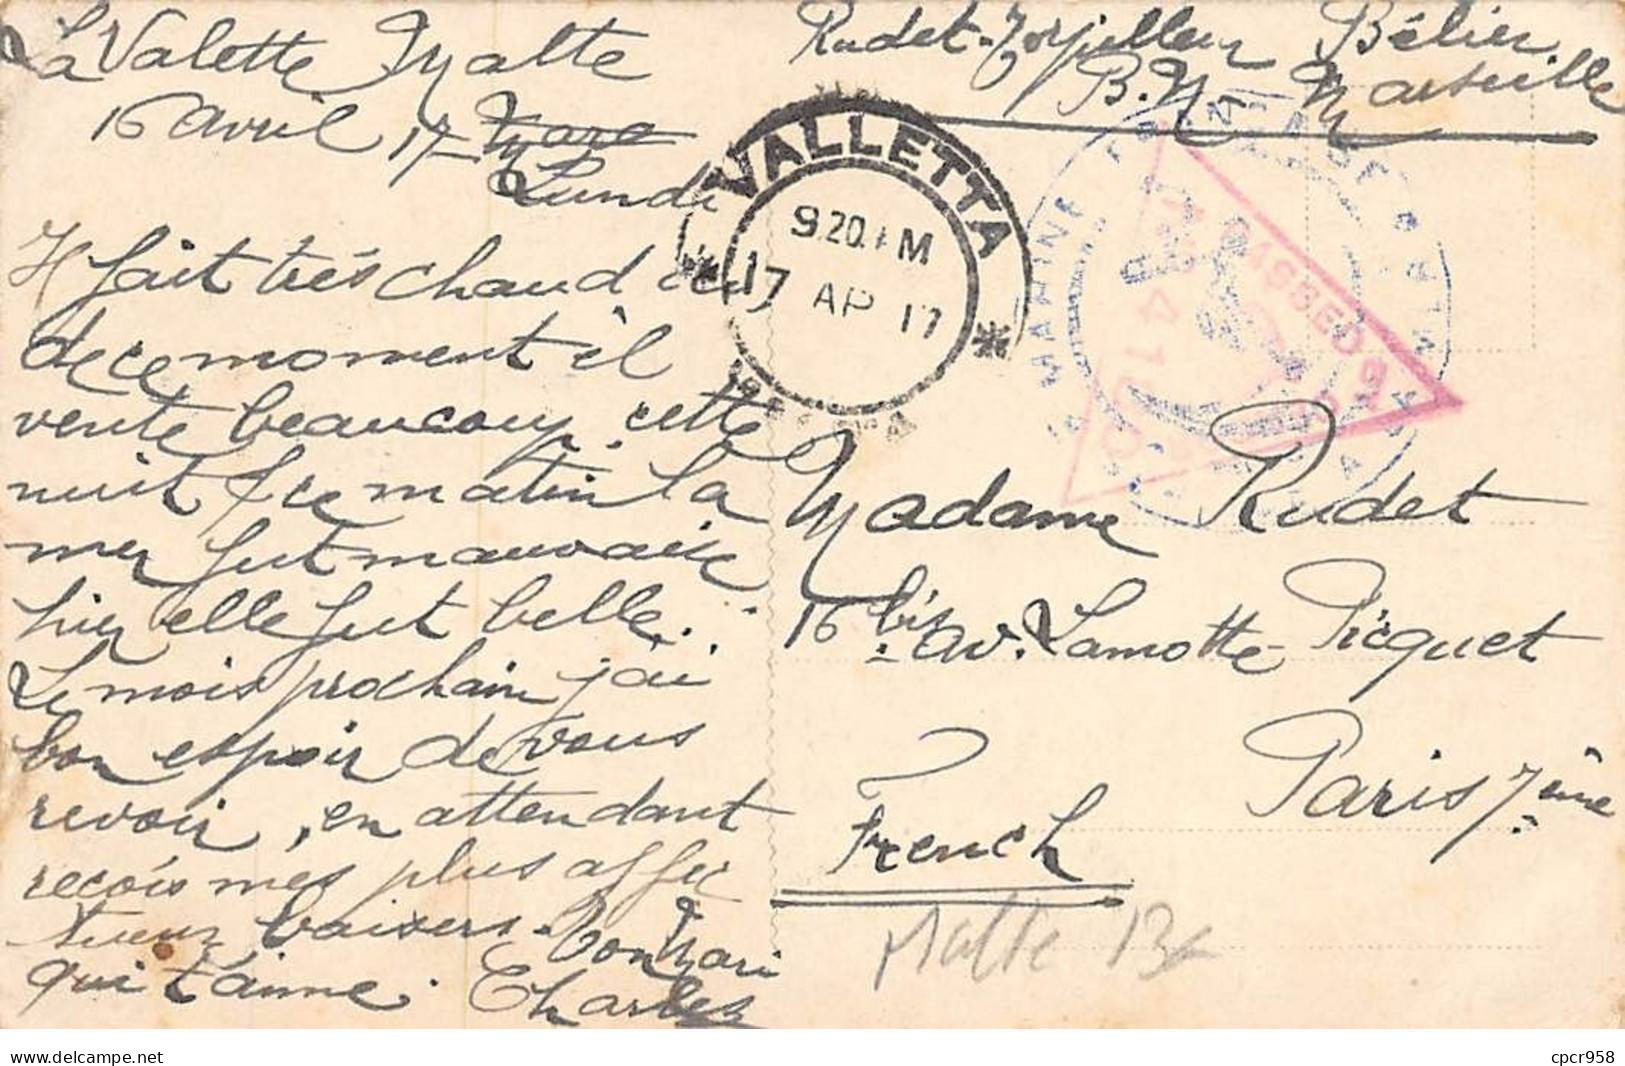 La Valette Malte
16 avril 17 Mard
Lundi
Il fait très chaud ici
de ce moment il
vente beaucoup, cette
nuit & ce matin la
mer fut mauvaise
hier elle fut belle.
Le mois prochain j'ai
bon espoir de vous
revoir, en attendant
reçois mes plus affec
tueux baisers. Ton Mari
qui t'aime. Charles
Rudet-Torpilleur Bélier
B.N. Marseille
VALLETTA
9.20 AM
17 AP 17
MARINE
PASSED
Madame Rudet
16 bis av. Lamotte-Picquet
Paris 7ème
French
Malte 13
delcampe.net
cpcr958